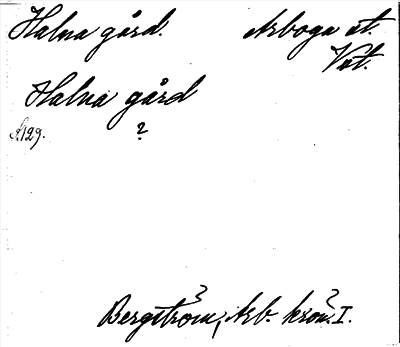 Halna gård. Arboga st.
Vstm.
Halna gård
S. 129. ?
Bergström, Arb. krön. I.